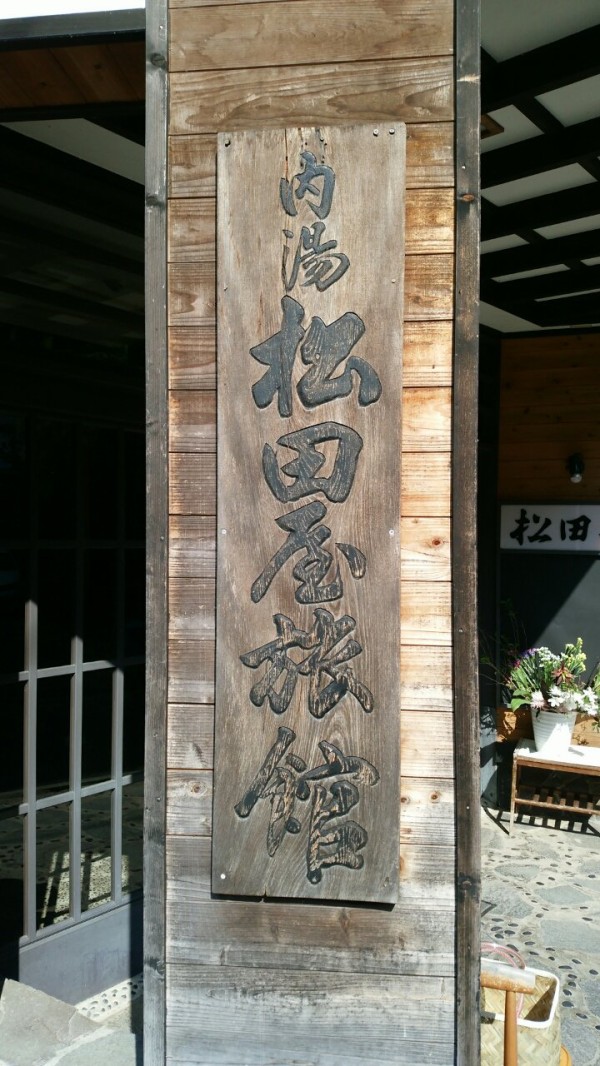 内湯 松田屋旅館
松田